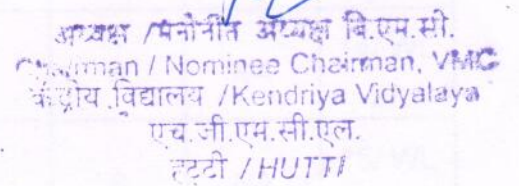 अध्यक्ष /मनोनीत अध्यक्ष बि.एम.सी.
Chairman / Nominee Chairman, VMC
केंद्रीय विद्यालय /Kendriya Vidyalaya
एच.जी.एम.सी.एल.
हट्टी / HUTTI